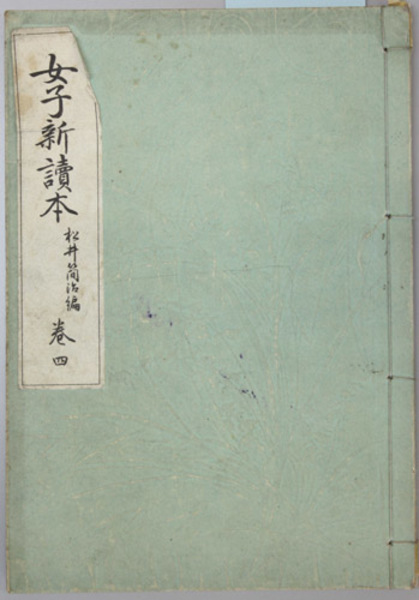 女子新讀本
松井簡治編
卷四